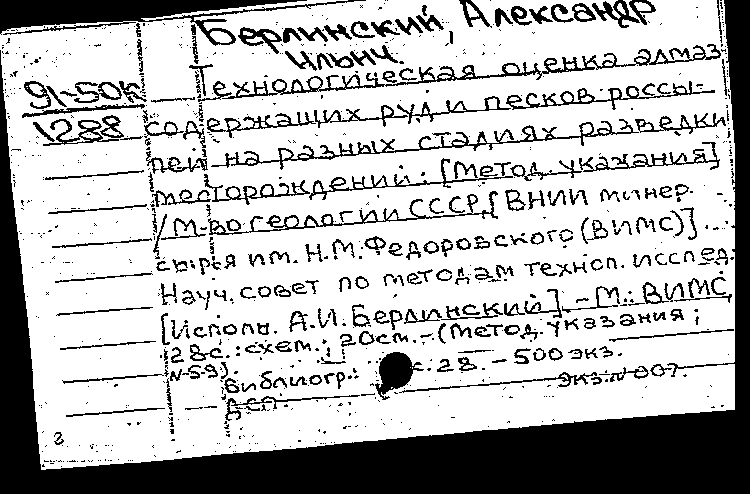 Берлинский, Александр
Ильич.
91-50к
1288
Технологическая оценка алмаз
содержащих руд и песков россы-
пей на разных стадиях разведки
месторождений: [Метод. указания]
/М-во геологии СССР, [ВНИИ минер.
сырья им. Н.М. Федоровского (ВИМС)]...
Науч. совет по методам технол. исслед.
[Исполн. А.И. Берлинский]. - М.: ВИМС,
28с.: схем.; 20см. - (Метод. указания;
N 59).
Библиогр.: с. 28. - 500 экз.
ДСП. Экз. N 007.